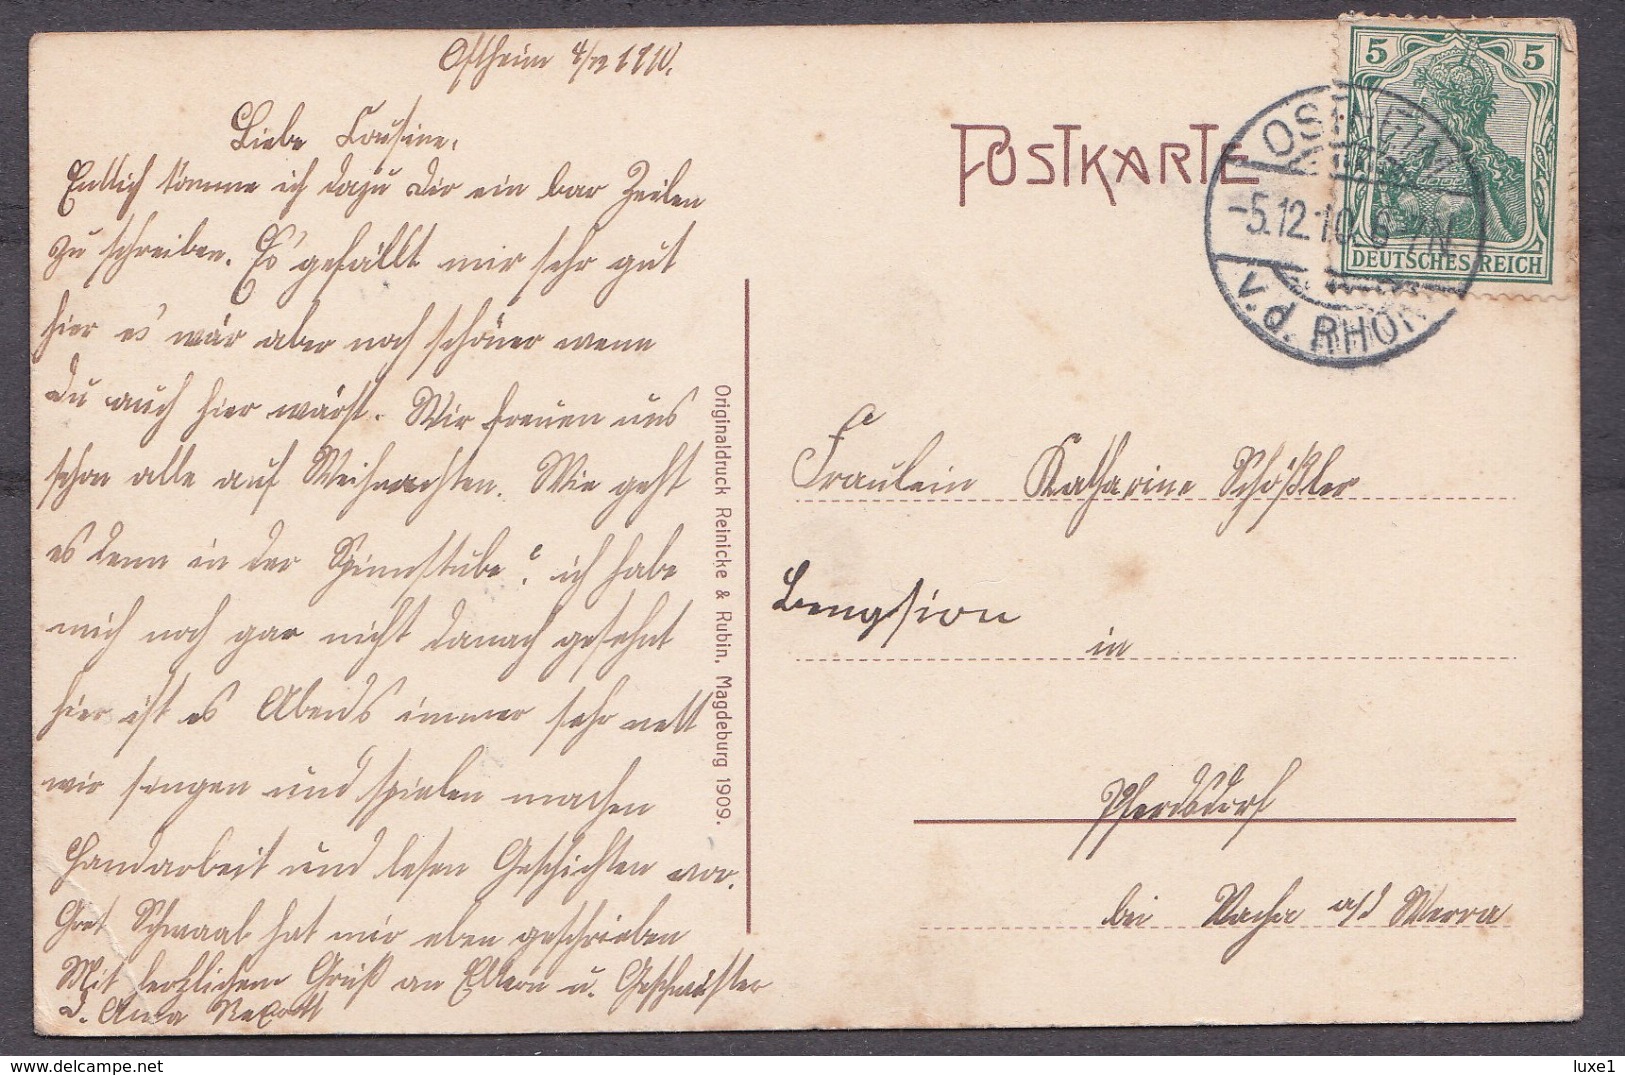 Ostheim 4/12 1910.
Liebe Cousine,
Endlich komme ich dazu dir ein bar Zeilen
zu schreiben. Es gefällt mir sehr gut
hier es wär aber noch schöner wenn
du auch hier wärst. Wir freuen uns
schon alle auf Weihnachten. Wie geht
es denn in der Spinnstube? ich habe
mich noch gar nicht danach gesehnt
hier ist es Abends immer sehr nett
wir singen und spielen machen
Handarbeit und lesen Geschichten vor.
Gret Schwaab hat mir eben geschrieben
Mit herzlichem Gruß an Eltern u. Geschwister
D. Anna
Originaldruck Reinicke & Rubin, Magdeburg 1909.
POSTKARTE
5 5
DEUTSCHES REICH
OSTHEIM
-5.12.10. 6-7N
v.d. RHÖN
Fräulein Katharine Schößler
in
Pferdsdorf
bei Vacha a/d Werra
luxe1